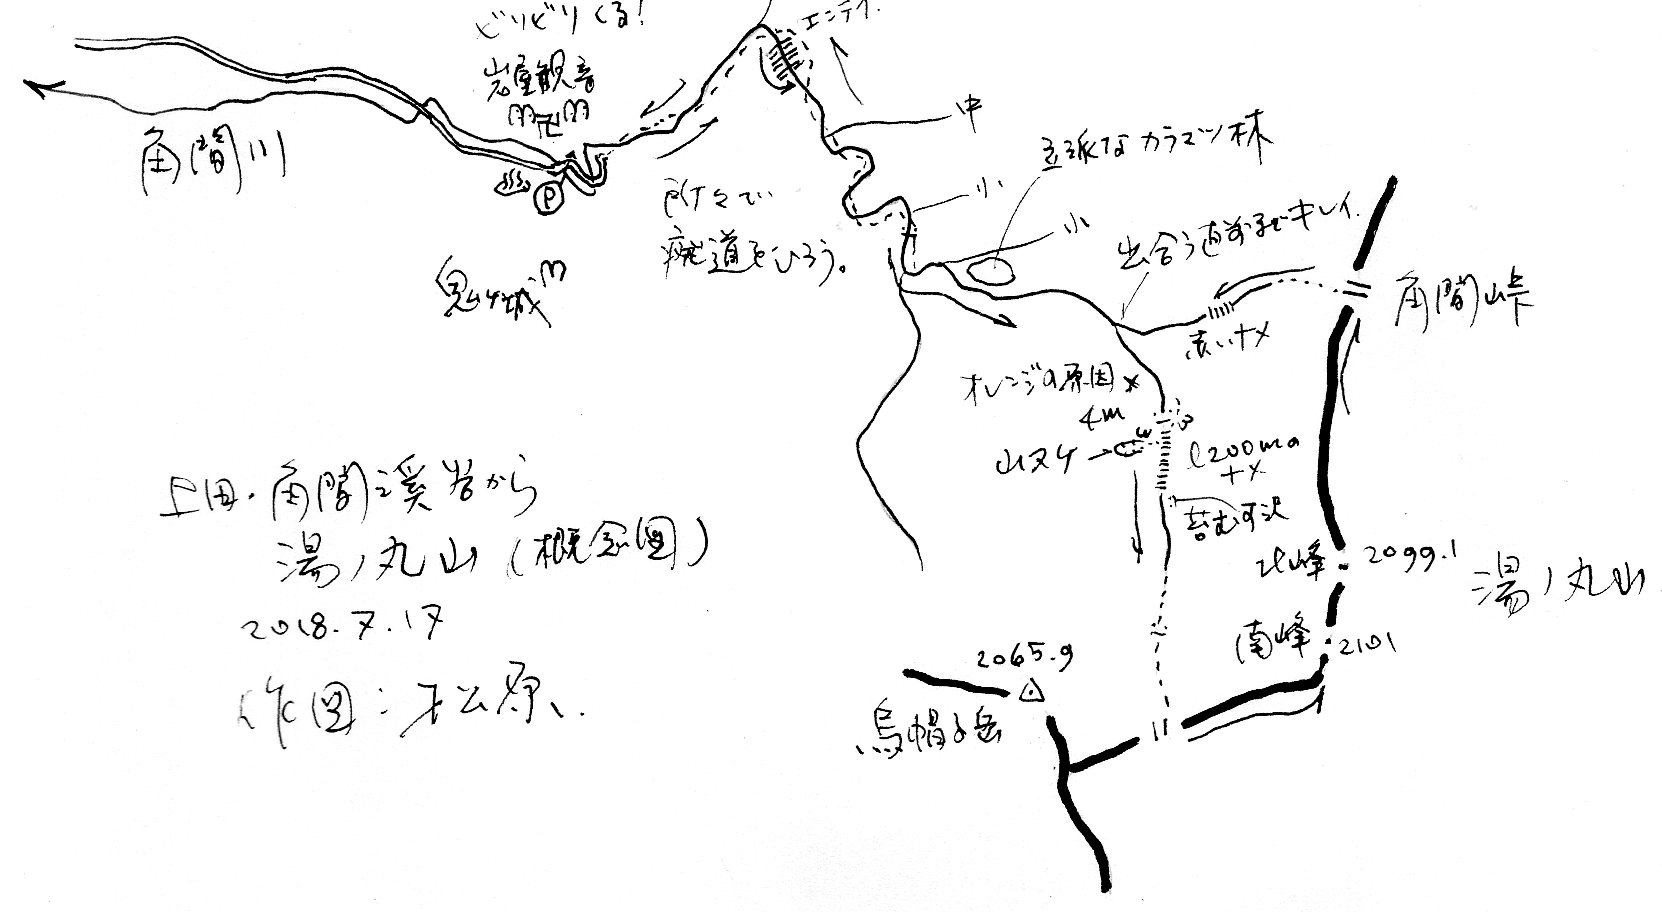 ビリビリくる!
エンテイ.
岩屋観音
卍
中
角間川
P
立派なカラマツ林
小
所々で
廃道をひろう。
小
出合う直前までキレイ.
鬼ヶ城
角間峠
赤いナメ
オレンジの原因
4m
山ヌケ
l200mの
ナメ
苔むす沢
上田・角間渓谷から
湯ノ丸山(概念図)
2018.7.17
作図:松原.
北峰 2099.1
湯ノ丸山
南峰 2101
2065.9
烏帽子岳